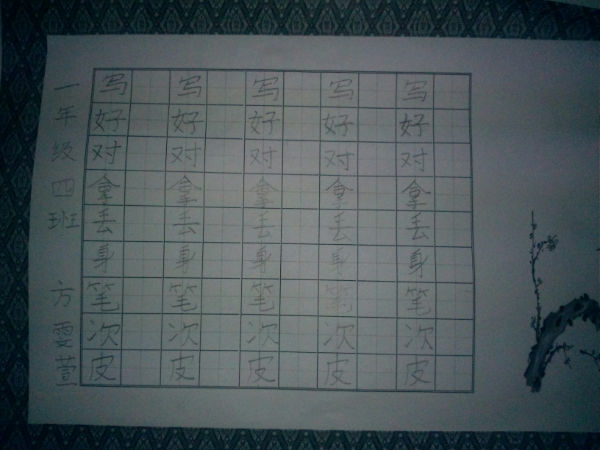 一年级四班 方雯萱
写 写 写 写 写
好 好 好 好 好
对 对 对 对 对
拿 拿 拿 拿 拿
丢 丢 丢 丢 丢
身 身 身 身 身
笔 笔 笔 笔 笔
次 次 次 次 次
皮 皮 皮 皮 皮